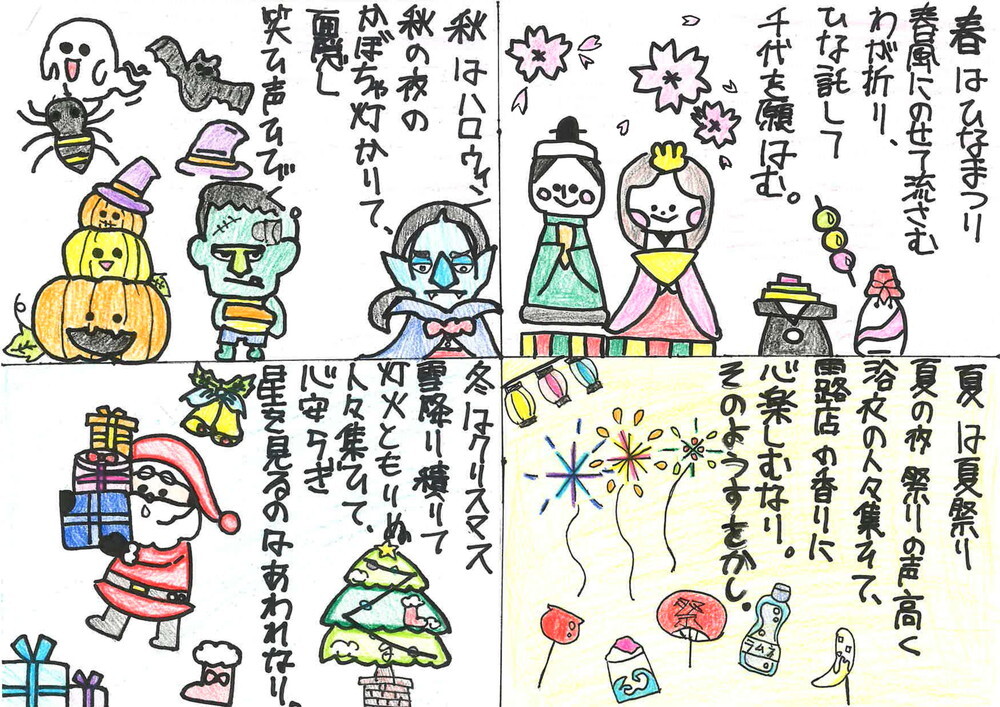 春はひなまつり
春風にのせて流さむ
わが折り、
ひな託して
千代を願はむ。
夏は夏祭り
夏の夜 祭りの声高く
浴衣の人々集ひて、
露店の香りに
心楽しむなり。
そのようすをかし。
祭
ラムネ
秋はハロウィン
秋の夜の
かぼちゃ灯かりて、
画展し
笑ひ声ひびく。
冬はクリスマス
雪降り積りて
灯火ともりぬ
人々集ひて、
心安らぎ
星を見るのはあわれなり。